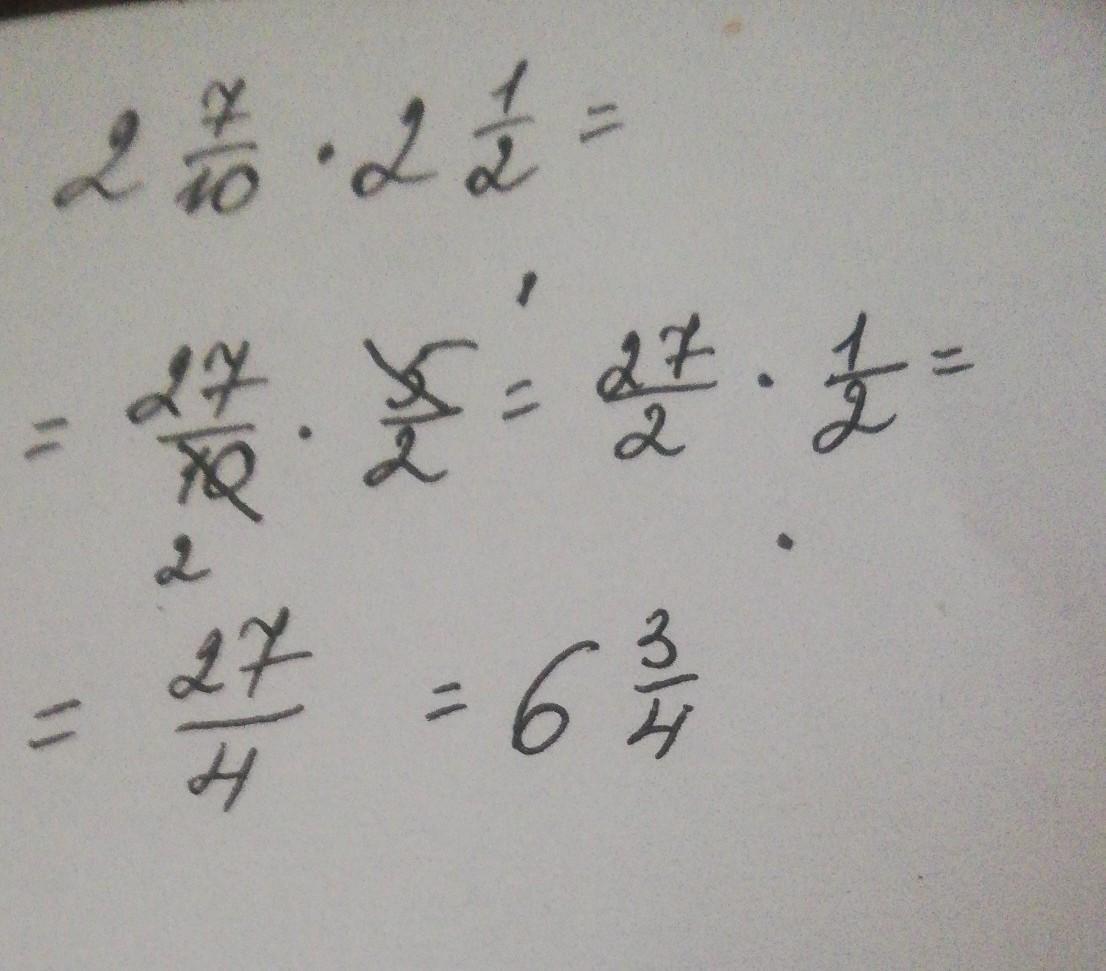 2 7/10 · 2 1/2 =
= 27/10 · 5/2 = 27/2 · 1/2 =
1
2
= 27/4 = 6 3/4